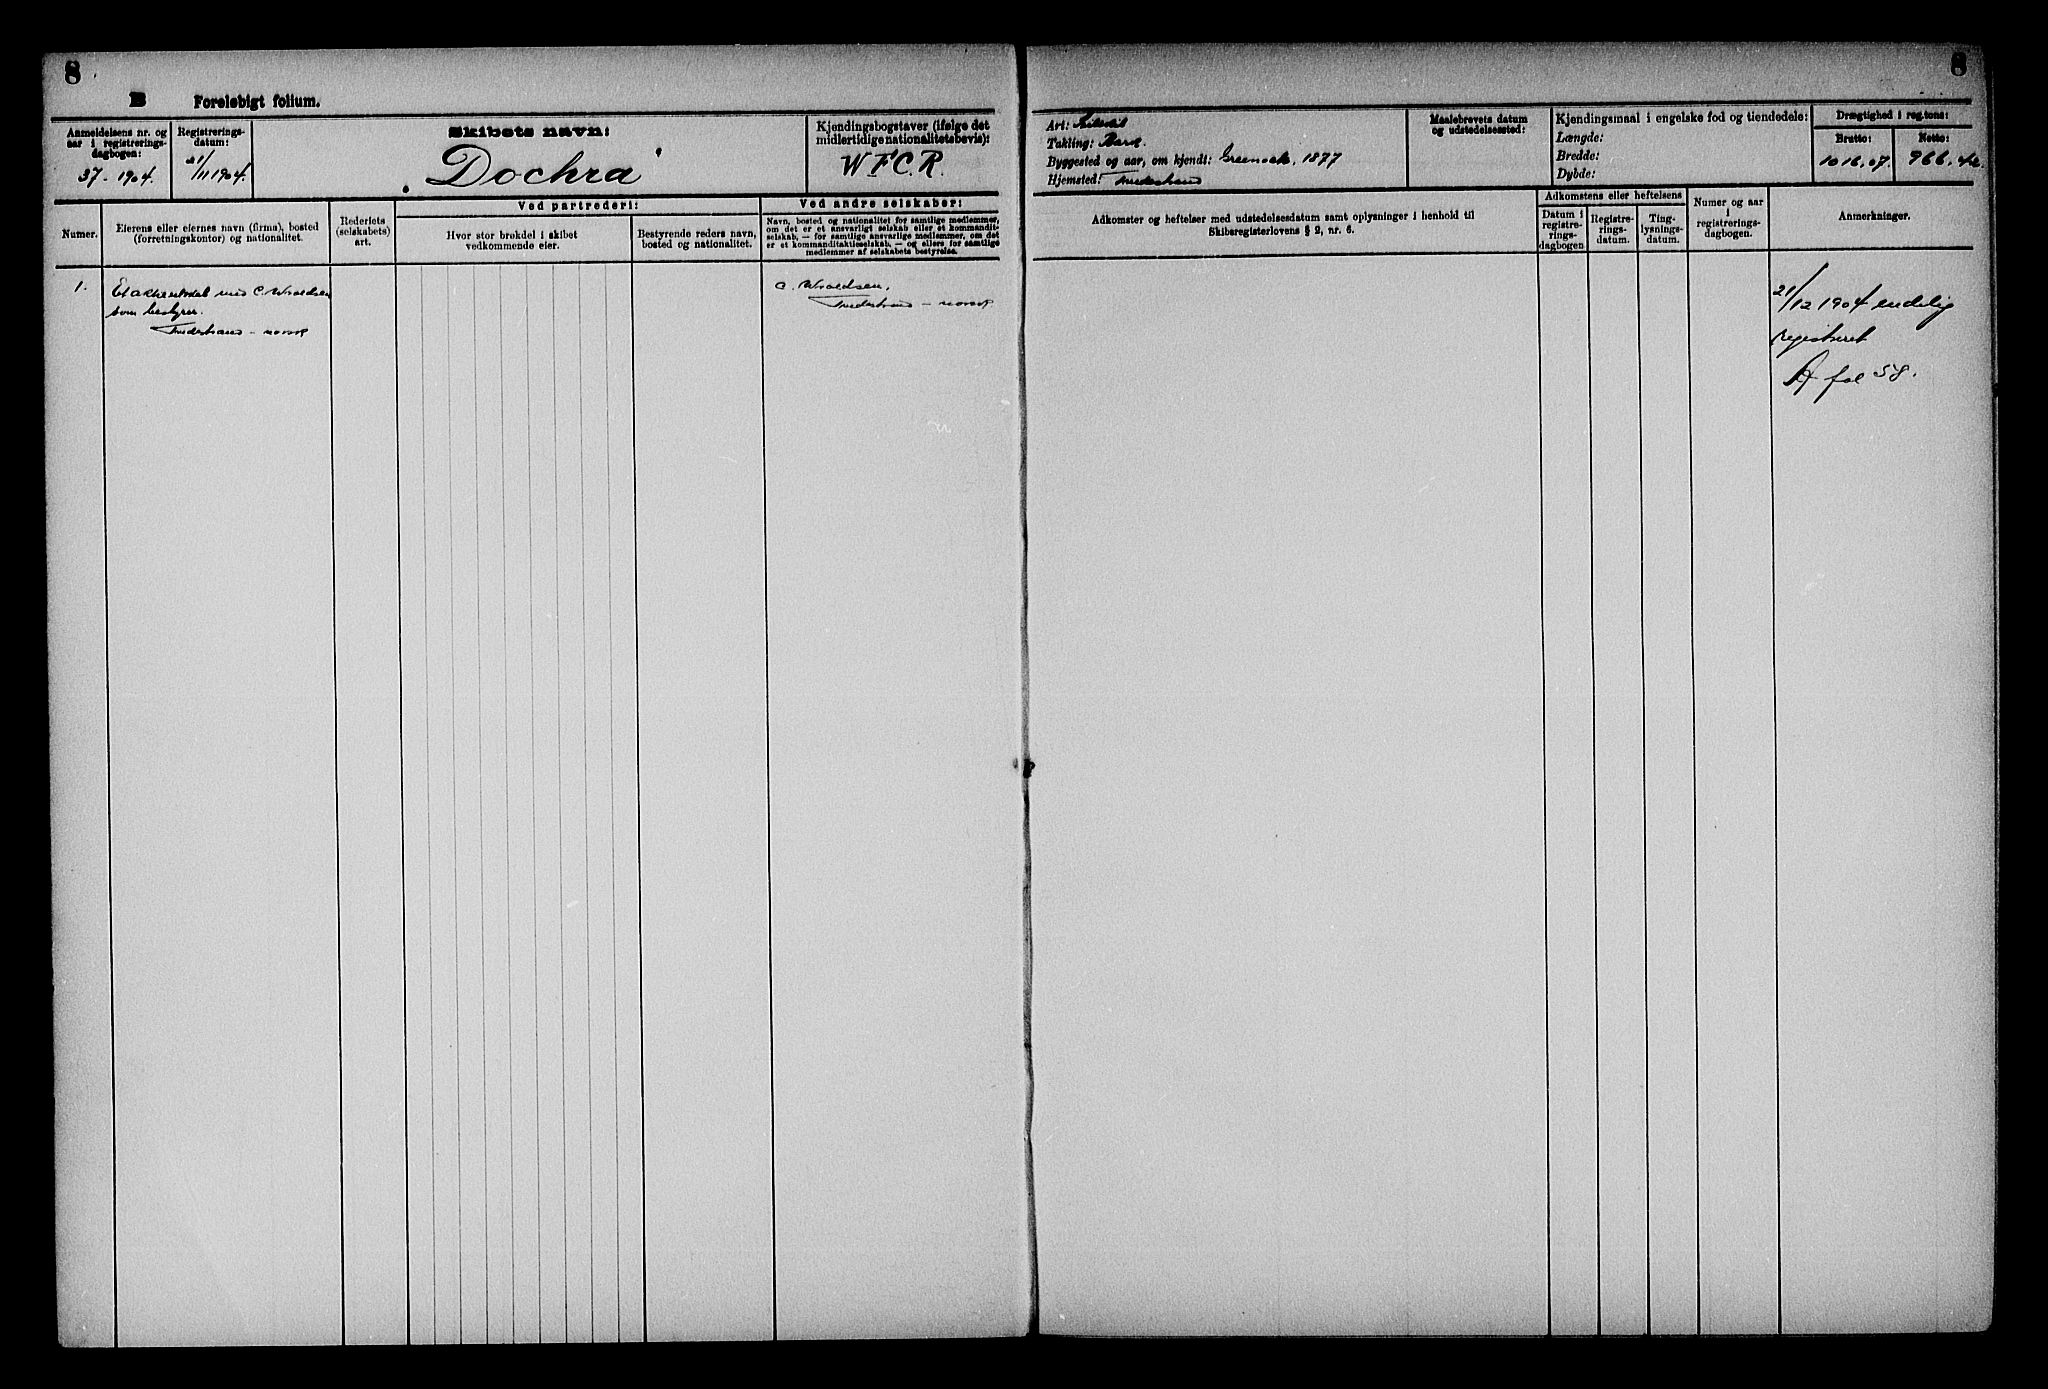 8
B Foreløbigt folium.
Anmeldelsens nr. og
aar i registrerings-
dagbogen:
37 - 1904.
Registrerings-
datum:
21/11 1904.
Skibets navn:
„Dochra"
Kjendingsbogstaver (ifølge det
midlertidige nationalitetsbevis):
W.F.C.R.
Numer.
Eierens eller eiernes navn (firma), bosted
(forretningskontor) og nationalitet.
Rederiets
(selskabets)
art.
Ved partrederi:
Hvor stor brøkdel i skibet
vedkommende eier.
Bestyrende reders navn,
bosted og nationalitet.
Ved andre selskaber:
Navn, bosted og nationalitet for samtlige medlemmer,
om det er et ansvarligt selskab eller et kommandit-
selskab, — for samtlige ansvarlige medlemmer, om det
er et kommanditaktieselskab, — og ellers for samtlige
medlemmer af selskabets bestyrelse.
1.
Et aktieselskab med C. Wroldsen
som bestyrer.
Tvedestrand - norsk
C. Wroldsen,
Tvedestrand - norsk
8
Art:
Takling: Bark.
Byggested og aar, om kjendt: Greenock, 1877
Hjemsted: Tvedestrand
Maalebrevets datum
og udstedelsessted:
Kjendingsmaal i engelske fod og tiendedele:
Længde:
Bredde:
Dybde:
Drægtighed i reg.tons:
Brutto:
1016.07.
Netto:
966.
Adkomster og heftelser med udstedelsesdatum samt oplysninger i henhold til
Skibsregisterlovens § 2, nr. 6.
Adkomstens eller heftelsens
Datum i
registre-
rings-
dagbogen
Registre-
rings-
datum.
Ting-
lysnings-
datum.
Numer og aar
i
registrerings-
dagbogen.
Anmerkninger.
21/12 1904 endelig
registreret
A fol 58.